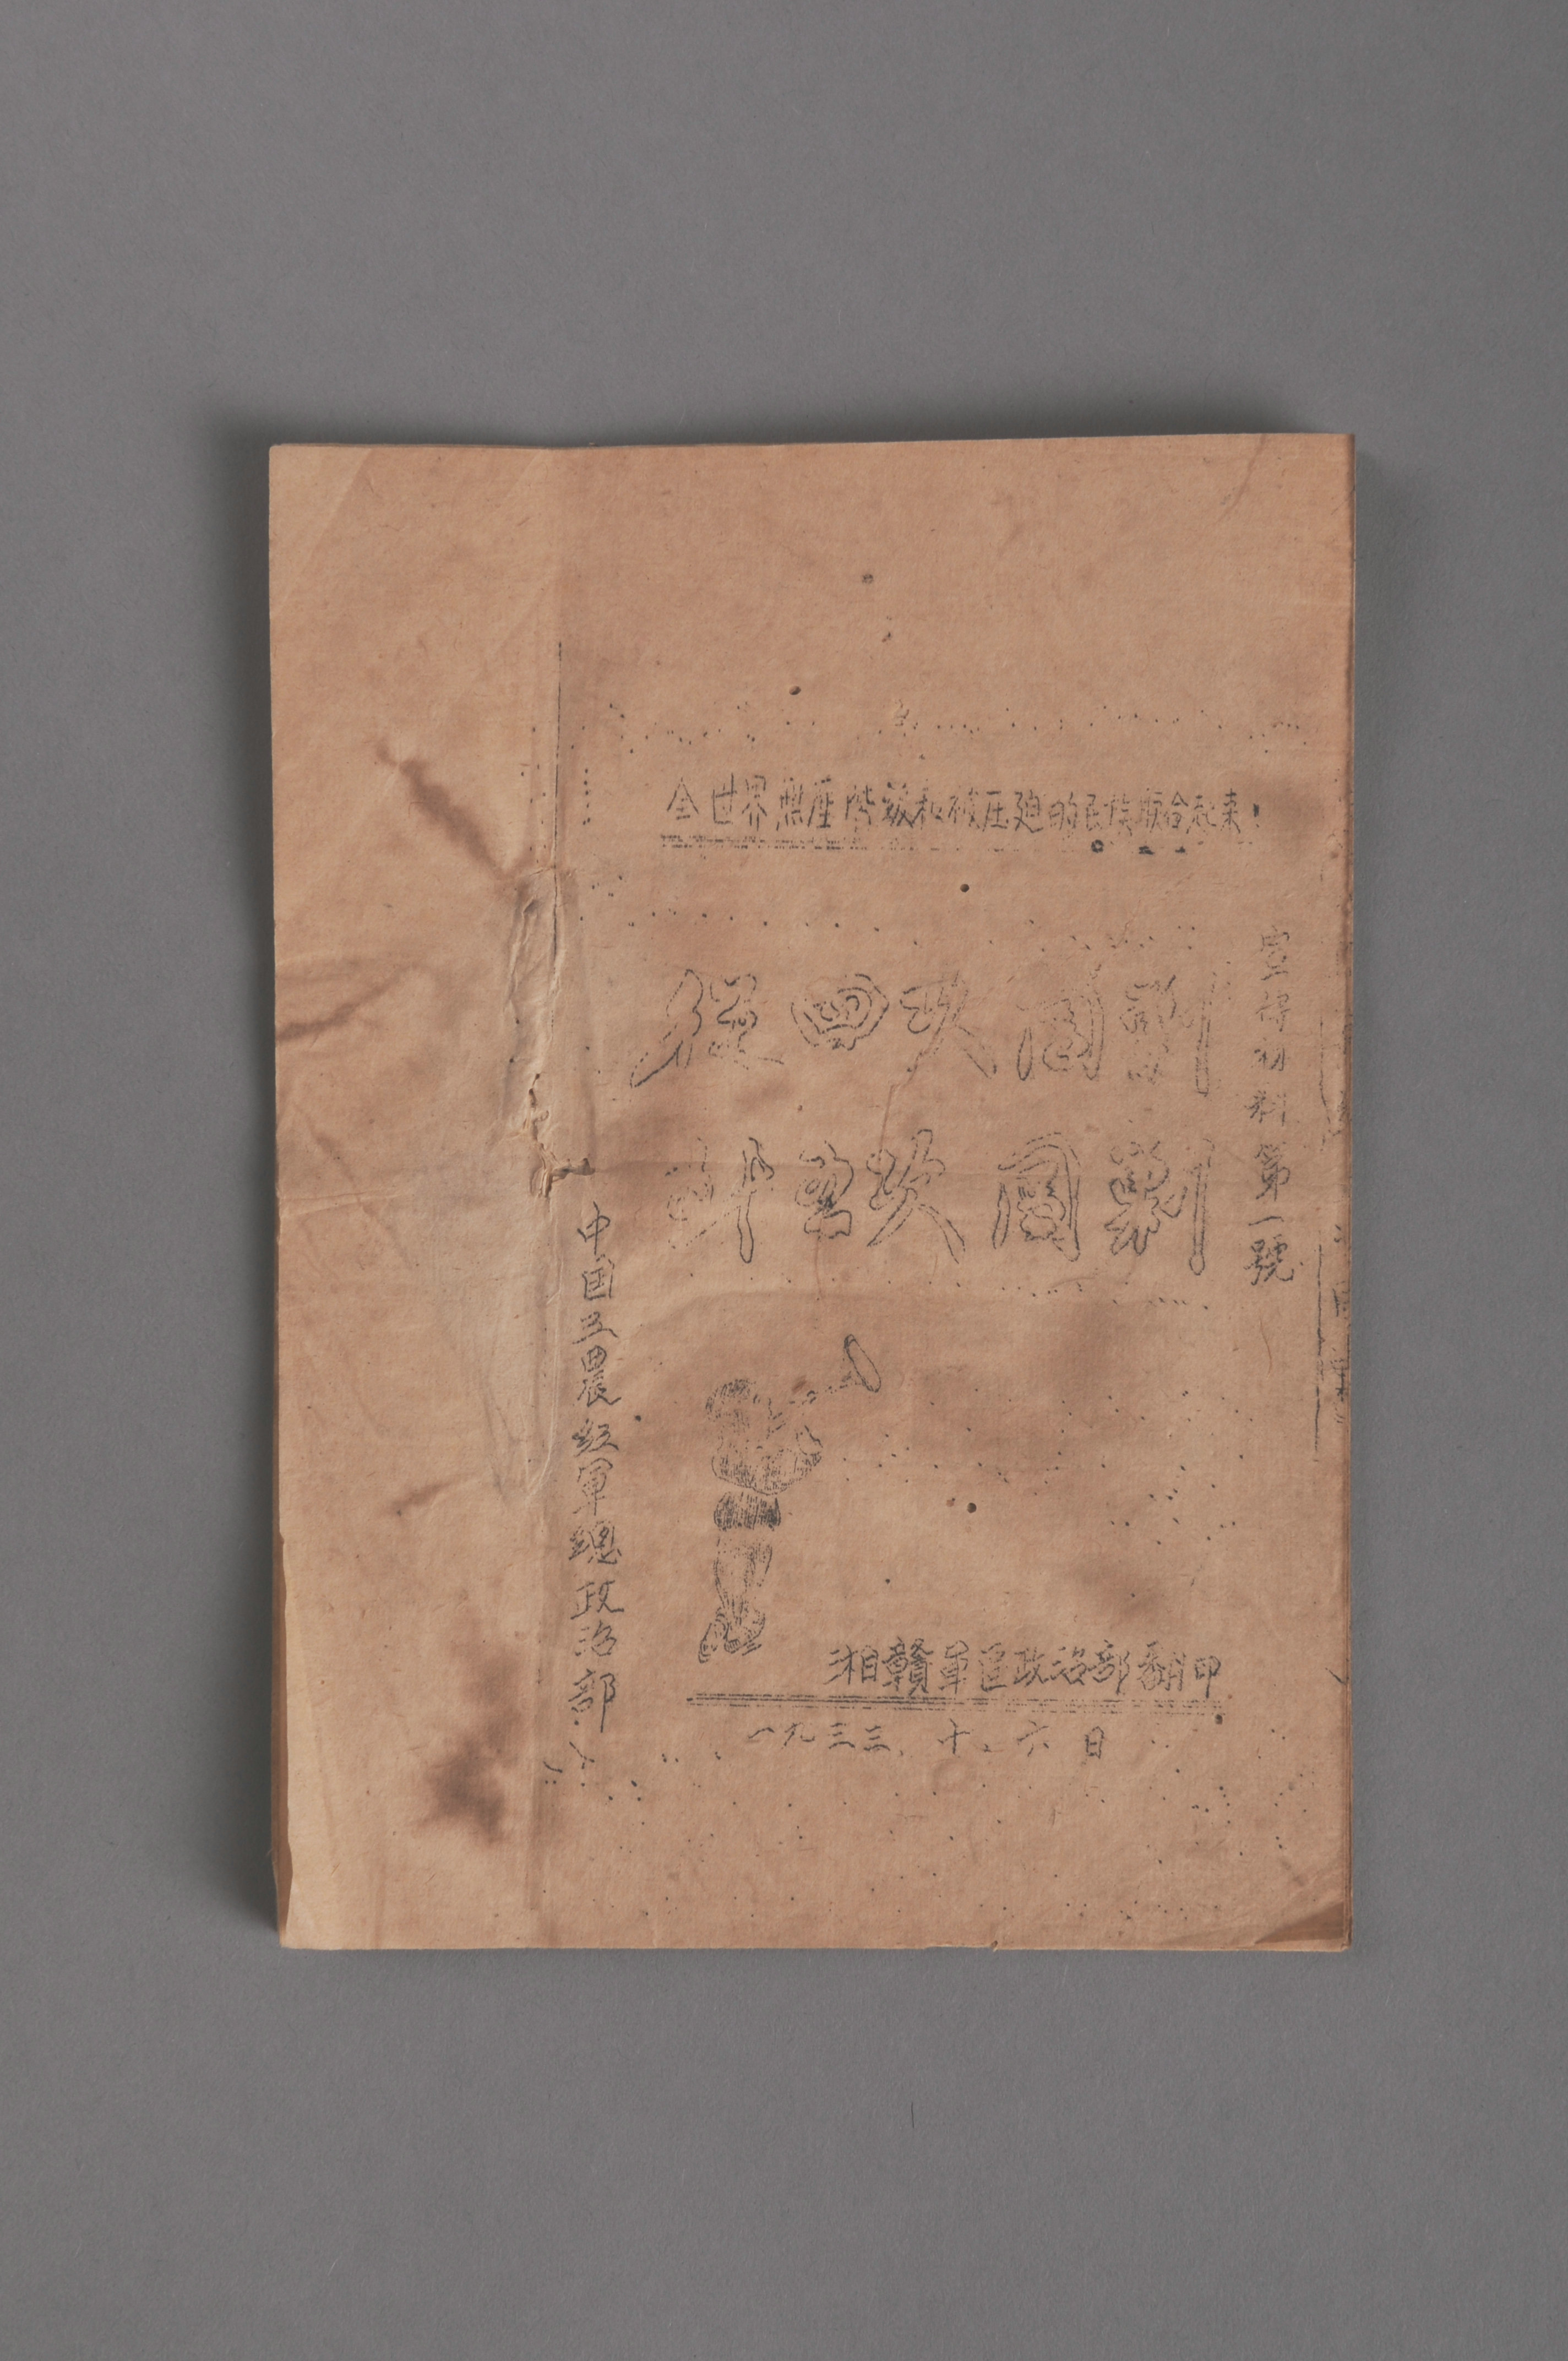 全世界無產階級和被压迫的民族联合起来!
宣傳材料第一號
四次圍剿
五次圍剿
中国工農紅軍總政治部
湘贛軍區政治部翻印
一九三三、十、六日